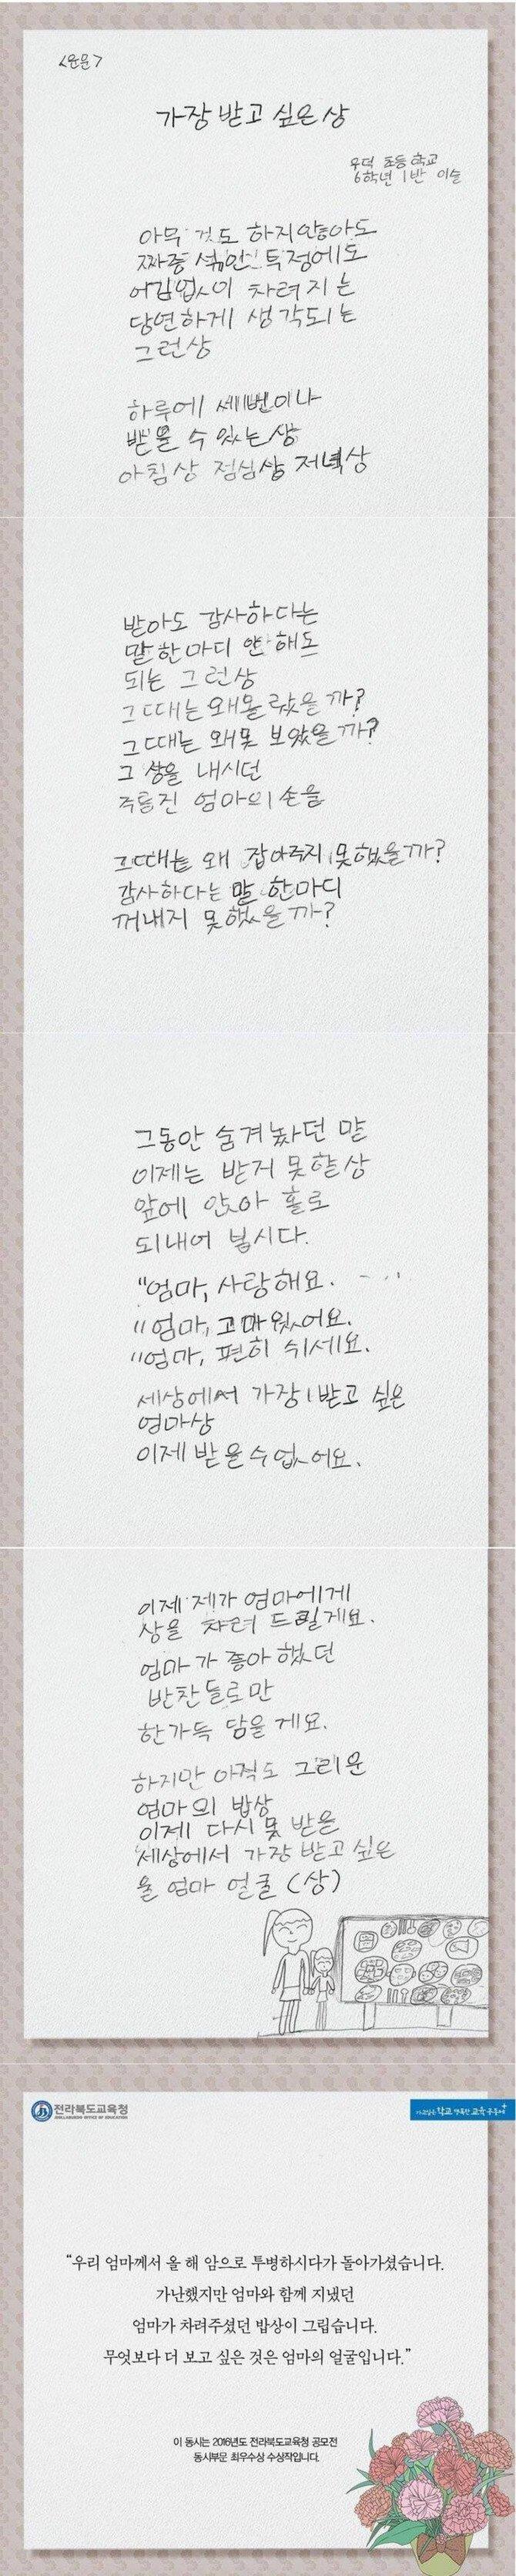 <운문>
가장 받고 싶은 상
우덕 초등학교
6학년 1반 이슬
아무 것도 하지 않아도
짜증 섞인 투정에도
어김없이 차려지는
당연하게 생각되는
그런상
하루에 세번이나
받을 수 있는 상
아침상 점심상 저녁상
받아도 감사하다는
말 한마디 안해도
되는 그런상
그때는 왜 몰랐을까?
그때는 왜 못 보았을까?
그 상을 내시던
주름진 엄마의 손을
그때는 왜 잡아주지 못했을까?
감사하다는 말 한마디
꺼내지 못했을까?
그동안 숨겨놨던 말
이제는 받지 못할상
앞에 앉아 홀로
되내어 봅시다.
"엄마, 사랑해요.
"엄마, 고마웠어요.
"엄마, 편히 쉬세요.
세상에서 가장 받고 싶은
엄마상
이제 받을수 없어요.
이제 제가 엄마에게
상을 차려 드릴게요.
엄마가 좋아했던
반찬들로만
한가득 담을게요.
하지만 아직도 그리운
엄마의 밥상
이제 다시 못 받을
세상에서 가장 받고 싶은
울 엄마 얼굴 (상)
전라북도교육청
JEOLLABUKDO OFFICE OF EDUCATION
가고싶은 학교 행복한 교육공동체
"우리 엄마께서 올 해 암으로 투병하시다가 돌아가셨습니다.
가난했지만 엄마와 함께 지냈던
엄마가 차려주셨던 밥상이 그립습니다.
무엇보다 더 보고 싶은 것은 엄마의 얼굴입니다."
이 동시는 2016년도 전라북도교육청 공모전
동시부문 최우수상 수상작입니다.